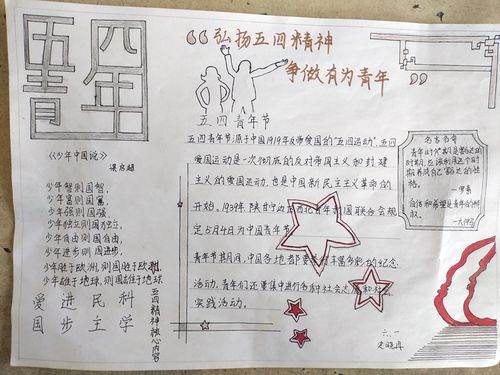 五四
青年
“弘扬五四精神
争做有为青年”
五四青年节
《少年中国说》
梁启超
少年智则国智,
少年富则国富,
少年强则国强,
少年独立则国独立,
少年自由则国自由,
少年进步则国进步,
少年胜于欧洲,则国胜于欧洲,
少年雄于地球,则国雄于地球
爱国
进步
民主
科学
五四精神核心内容
五四青年节源于中国1919年反帝爱国的“五四运动”,五四
爱国运动是一次彻底的反对帝国主义和封建
主义的爱国运动,也是中国新民主主义革命的
开始。1939年,陕甘宁边区西北青年救国联合会规
定5月4日为中国青年节。
青年节期间,中国各地都要举行丰富多彩的纪念
活动,青年们还要集中进行各种社会志愿和社会
实践活动。
名言名句
青年时期是豁达的
时期,应该利用这个时
期养成自己豁达的性
格。
—罗素
自信和希望是青年的特
权。
—大仲马
六、一